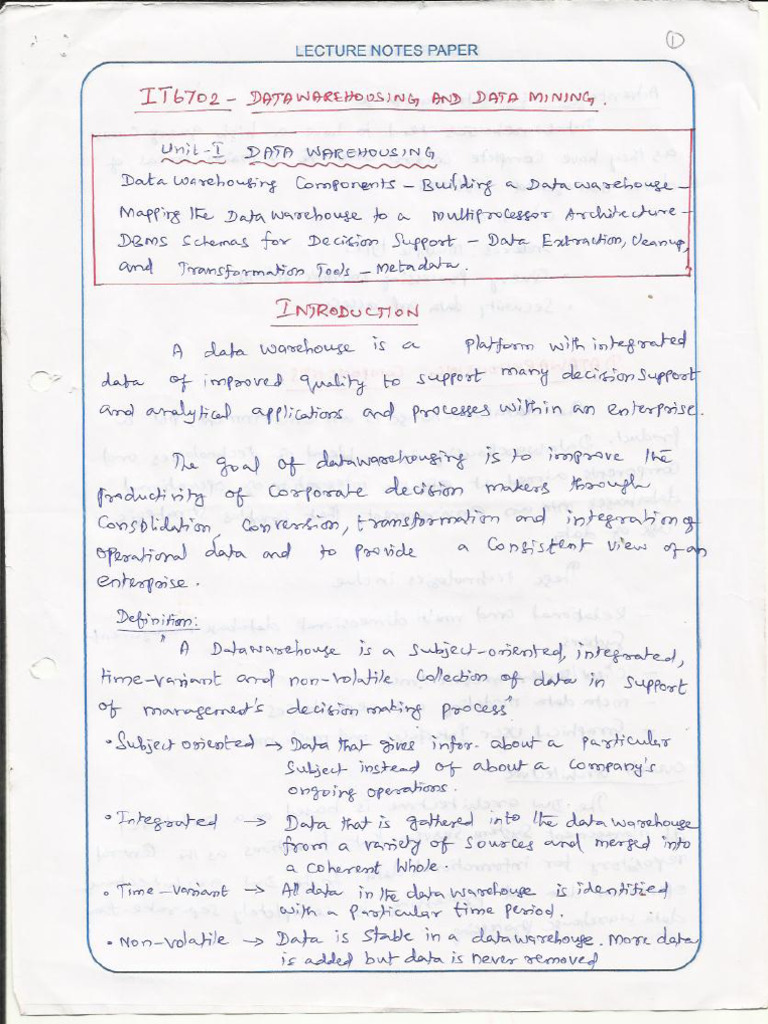 ①
LECTURE NOTES PAPER
IT6702 - DATAWAREHOUSING AND DATA MINING.
Unit-I DATA WAREHOUSING
Data Warehousing Components - Building a Data warehouse -
Mapping the Data Warehouse to a Multiprocessor Architecture -
DBMS Schemas for Decision Support - Data Extraction, Cleanup,
and Transformation Tools - Metadata.
INTRODUCTION
A data warehouse is a platform with integrated
data of improved quality to support many decision support
and analytical applications and processes within an enterprise.
The goal of datawarehousing is to improve the
productivity of corporate decision makers through
Consolidation, Conversion, transformation and integration of
operational data and to provide a consistent view of an
enterprise.
Definition:
" A Datawarehouse is a subject-oriented, integrated,
time-variant and non-volatile collection of data in support
of management's decision making process"
• Subject oriented → Data that gives infor. about a particular
Subject instead of about a company's
ongoing operations.
• Integrated → Data that is gathered into the data warehouse
from a variety of sources and merged into
a coherent whole.
• Time-variant → All data in the data warehouse is identified
with a particular time period.
• Non-volatile → Data is stable in a datawarehouse. More data
is added but data is never removed